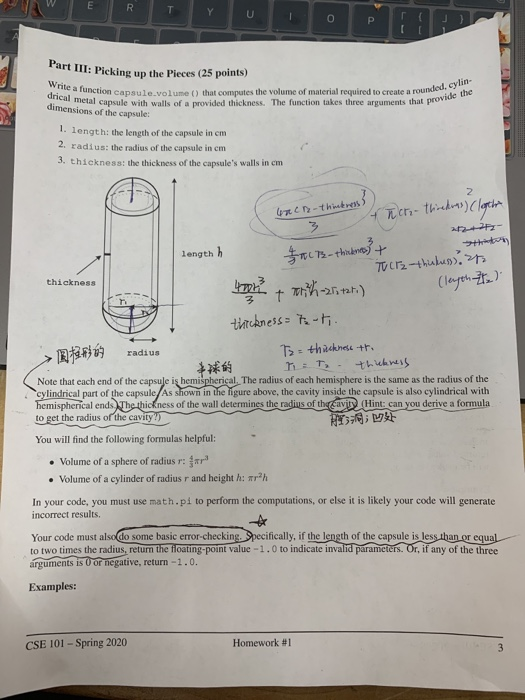 W E R T Y U I O P
Part III: Picking up the Pieces (25 points)
Write a function capsule.volume() that computes the volume of material required to create a rounded, cylin-
drical metal capsule with walls of a provided thickness. The function takes three arguments that provide the
dimensions of the capsule:
1. length: the length of the capsule in cm
2. radius: the radius of the capsule in cm
3. thickness: the thickness of the capsule's walls in cm
length h
thickness
thickness = r₂ - r₁.
r₂ = thickness + r₁.
r₁ = r₂ - thickness
radius
圆柱形的
半球的
Note that each end of the capsule is hemispherical. The radius of each hemisphere is the same as the radius of the
cylindrical part of the capsule. As shown in the figure above, the cavity inside the capsule is also cylindrical with
hemispherical ends. The thickness of the wall determines the radius of the cavity. (Hint: can you derive a formula
to get the radius of the cavity?)
You will find the following formulas helpful:
• Volume of a sphere of radius r: 4/3 πr³
• Volume of a cylinder of radius r and height h: πr²h
In your code, you must use math.pi to perform the computations, or else it is likely your code will generate
incorrect results.
Your code must also do some basic error-checking. Specifically, if the length of the capsule is less than or equal
to two times the radius, return the floating-point value -1.0 to indicate invalid parameters. Or, if any of the three
arguments is 0 or negative, return -1.0.
Examples:
CSE 101 – Spring 2020 Homework #1 3